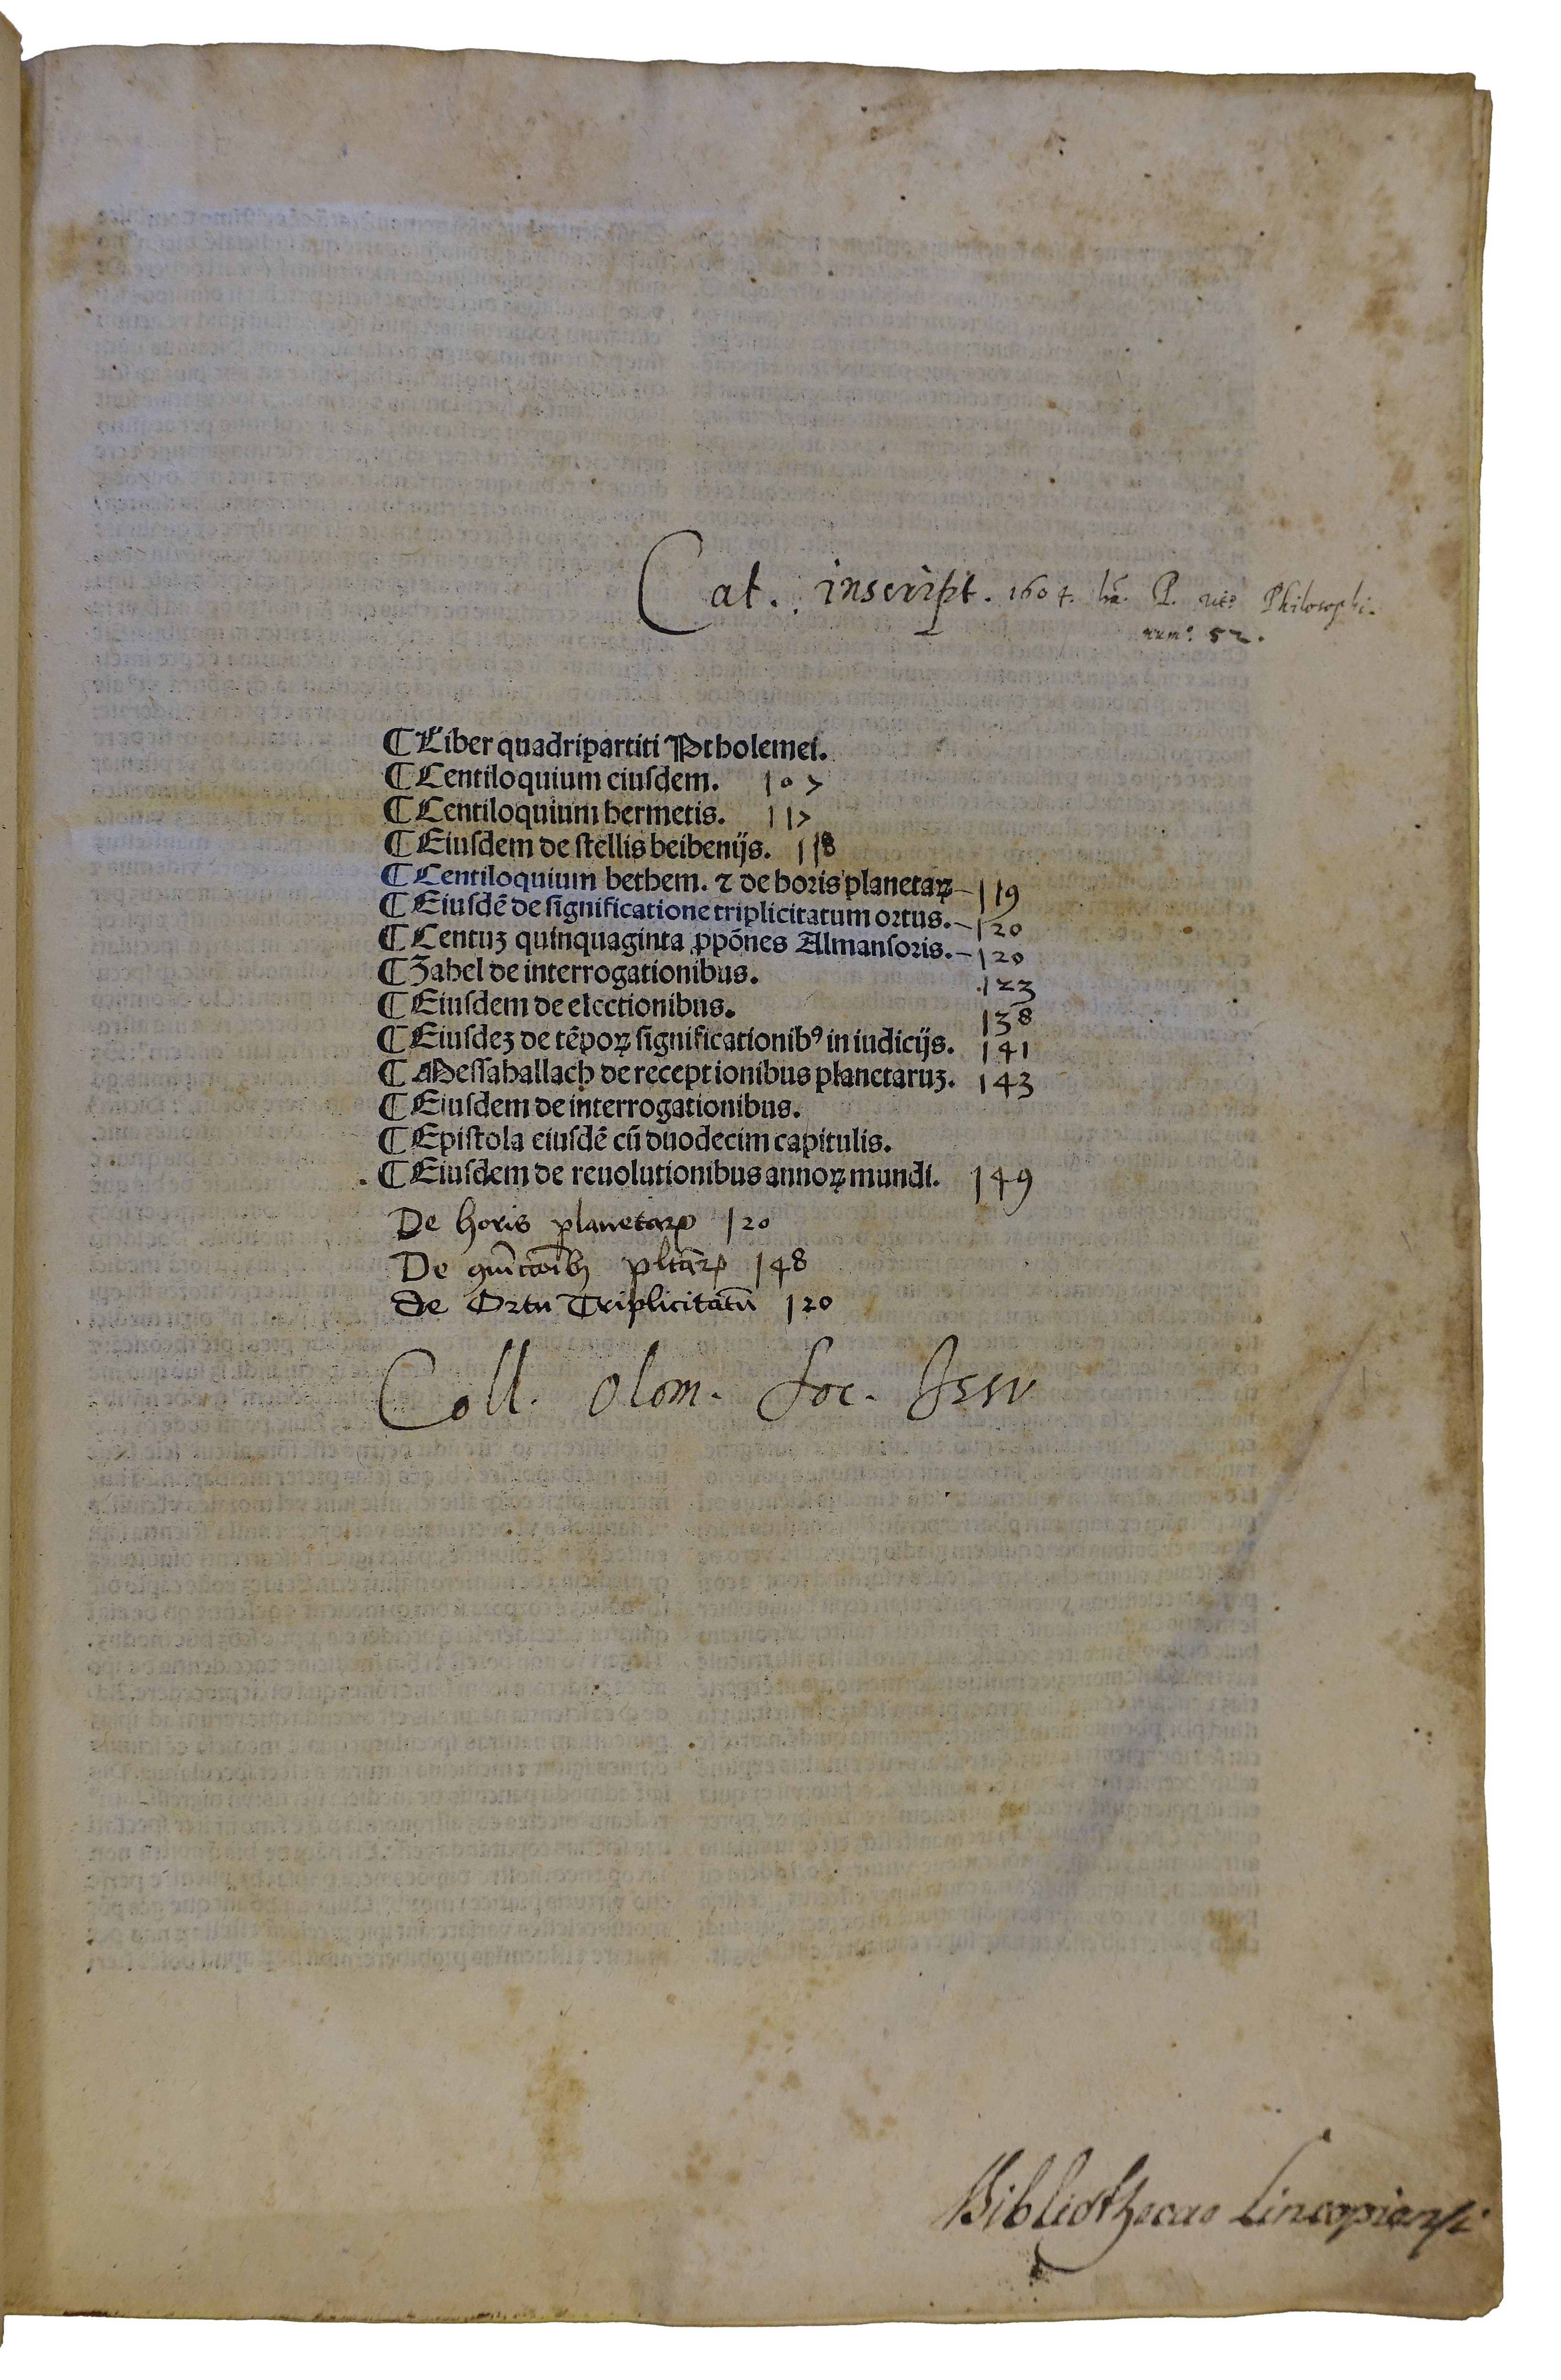 Cat. inscript. 1604. P. Philosophi.
num? 52.
¶ Liber quadripartiti Ptholemei.
¶ Centiloquium eiusdem. 107
¶ Centiloquium hermetis. 117
¶ Eiusdem de stellis beibenijs. 118
¶ Centiloquium bethem. ⁊ de horis planetaꝝ 119
¶ Eiusdē de significatione triplicitatum ortus. 120
¶ Centuꝫ quinquaginta ꝓpōnes Almansoris. 120
¶ Zahel de interrogationibus. 123
¶ Eiusdem de electionibus. 138
¶ Eiusdeꝫ de tēpoꝝ significationibꝰ in iudicijs. 141
¶ Messahallach de receptionibus planetaruꝫ. 143
¶ Eiusdem de interrogationibus.
¶ Epistola eiusdē cū duodecim capitulis.
¶ Eiusdem de reuolutionibus annoꝝ mundi. 149
De horis planetaꝝ 120
De pltāꝝ 148
de Ortu Triplicitatū 120
Coll. Olom. Soc. Jesu
Bibliothecae Lincopiensi